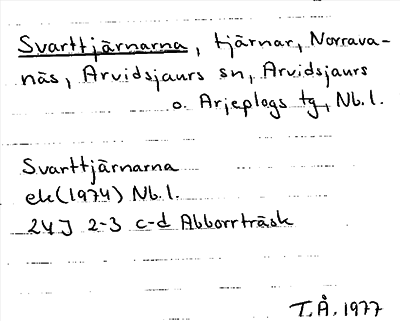 Svarttjärnarna, tjärnar, Norrava-
näs, Arvidsjaurs sn, Arvidsjaurs
o. Arjeplogs tg, Nb.l.
Svarttjärnarna
ek (1974) Nb.l.
24J 2-3 c-d Abborrträsk
T.Å. 1977